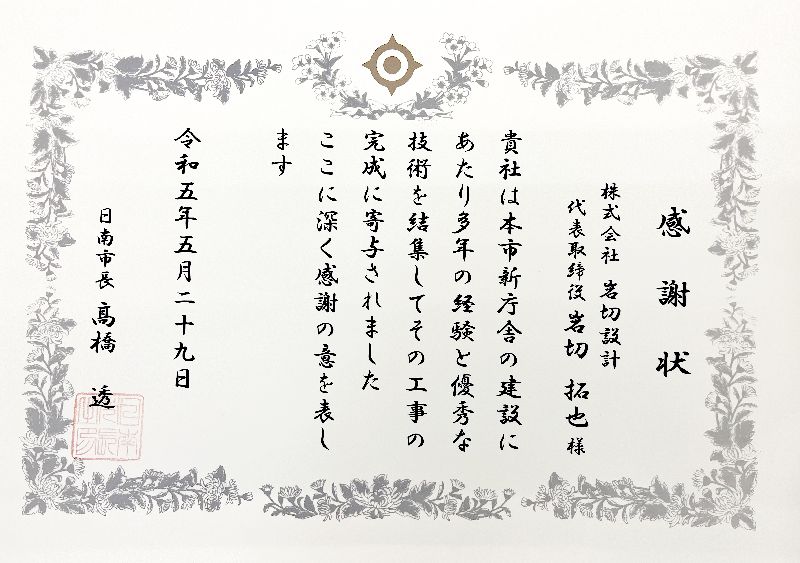 感謝状
株式会社 岩切設計
代表取締役 岩切 拓也 様
貴社は本市新庁舎の建設に
あたり多年の経験と優秀な
技術を結集してその工事の
完成に寄与されました
ここに深く感謝の意を表し
ます
令和五年五月二十九日
日南市長 髙橋 透